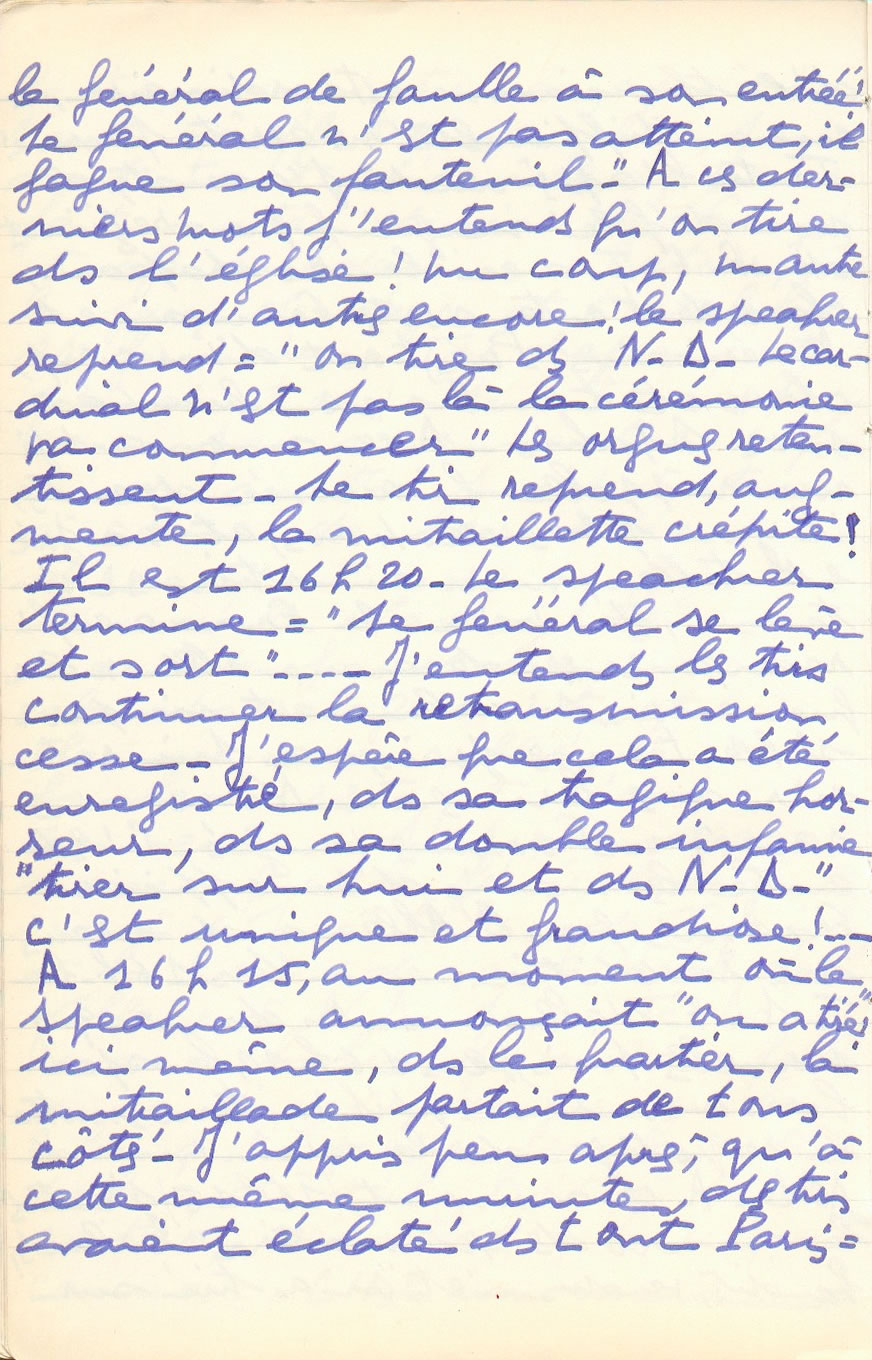 le général de Gaulle à son entrée!
Le général n'est pas atteint, il
gagne son fauteuil -" A ces der-
niers mots j'entends qu'on tire
ds l'église! un coup, un autre
suivi d'autres encore! le speaker
reprend = "on tire ds N-D- Le car-
dinal n'est pas là la cérémonie
va commencer" Les orgues reten-
tissent - Le tir reprend, aug-
mente, la mitraillette crépite!
Il est 16h20 - Le speacher
termine = "Le général se lève
et sort" ---- J'entends les tirs
continuer la retransmission
cesse - J'espère que cela a été
enregistré, ds sa tragique hor-
reur, ds sa double infamie
"tirer sur lui et ds N-D-"
c'est unique et grandiose! ---
A 16h15, au moment où le
speaker annonçait "on a tiré"
ici même, ds le quartier, la
mitraillade partait de tous
côtés - J'appris peu après, qu'à
cette même minute, des tirs
avaient éclaté ds tout Paris =